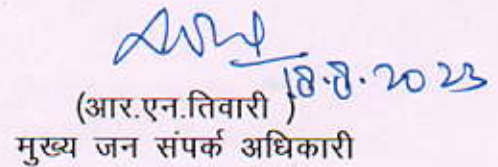 18.8.2023
(आर.एन.तिवारी )
मुख्य जन संपर्क अधिकारी